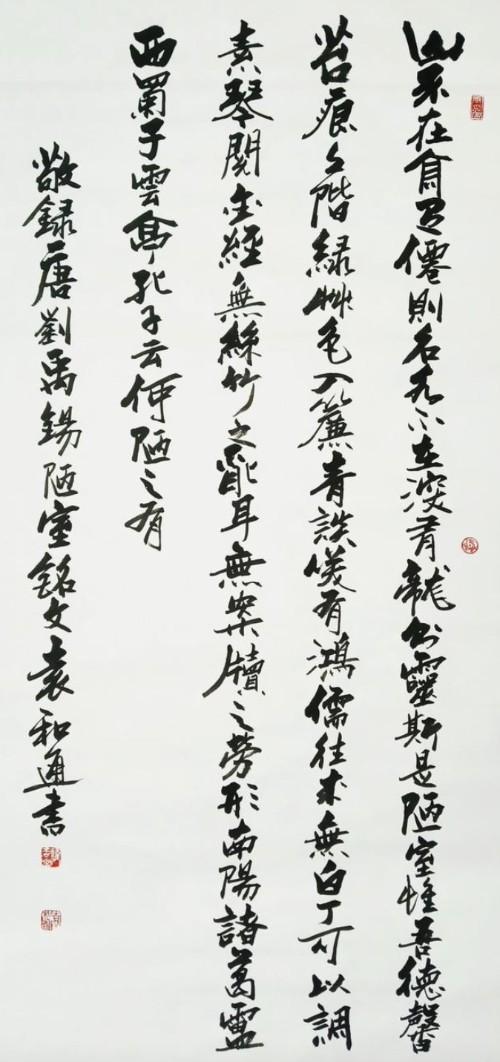 山不在高有僊則名水不在深有龍則靈斯是陋室惟吾德馨
苔痕上階緑艸色入簾青談笑有鴻儒往來無白丁可以調
素琴閱金經無絲竹之亂耳無案牘之勞形南陽諸葛廬
西蜀子雲亭孔子云何陋之有
敬録唐劉禹錫陋室銘文袁和通書